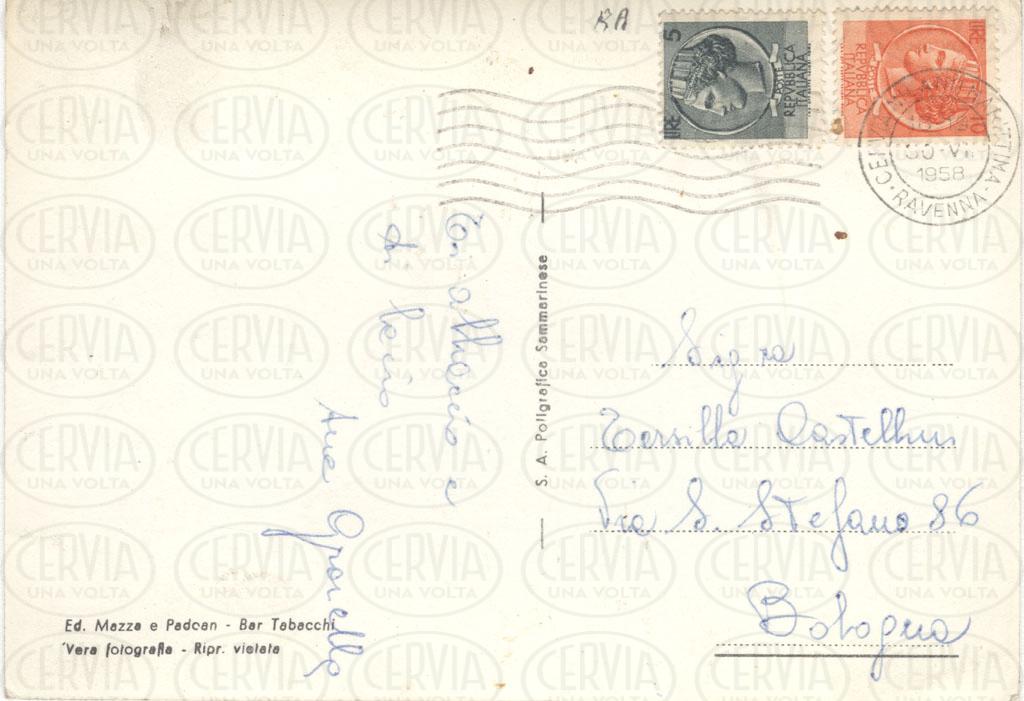 RA
LIRE 5
POSTE
REPVBBLICA
ITALIANA
LIRE 10
POSTE
REPVBBLICA
ITALIANA
MARITTIMA
30 VI
1958
RAVENNA
Un abbraccio e
di
Ornella
S. A. Poligrafica Sammarinese
Sig ra
Tersilla Castelli
Via S. Stefano 86
Bologna
Ed. Mazza e Padoan - Bar Tabacchi
Vera fotografia - Ripr. vietata
CERVIA
UNA VOLTA